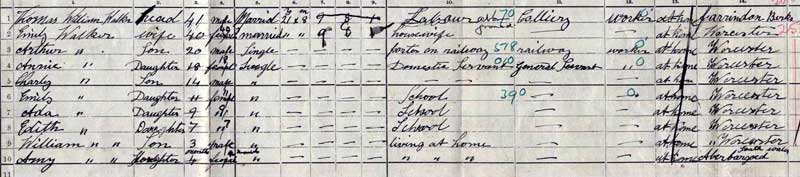 1 Thomas William Walker head 41 male Married 21 9 8 1 Labourer 670 Colliery Worker at home
2 Emily Walker wife 40 married " " 9 8 housewife — — — at home Worcester
3 Arthur " Son 20 male Single — — — — porter on railway 578 railway worker at home Worcester
4 Annie " Daughter 18 Single — — — — Domestic Servant General Servant " 0 at home Worcester
5 Charley " Son 14 male " — — — — — — — at home Worcester
6 Emily " Daughter 11 " — — — — School 390 — 0 at home Worcester
7 Ada " Daughter 9 " " — — — — School — — at home Worcester
8 Edith " Daughter 7 " " — — — — School — — at home Worcester
9 William " " Son 3 male " — — — — living at home — — at home " Worcester
10 Amy " " Daughter 4 months " — — — — " " " — — at home Aberbargoed South Wales
11